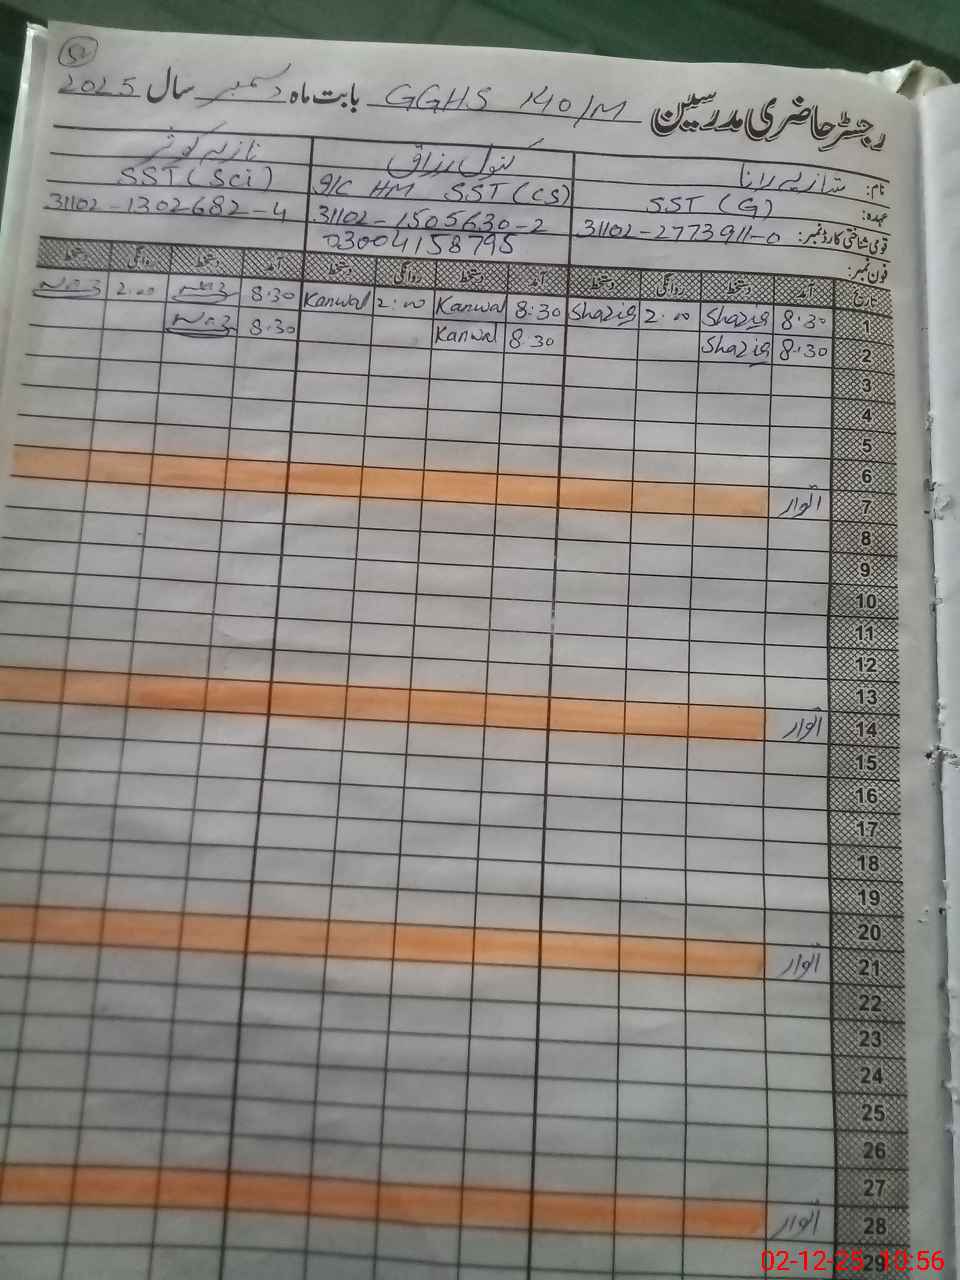 52
رجسٹر حاضری مدرسین GGHS 140/M بابت ماہ دسمبر سال 2025
نام: شازیہ رانا کنول رزاق نازیہ کوثر
عہدہ: SST (G) I/C HM SST (CS) SST (Sci)
قومی شناختی کارڈ نمبر: 31102-2773911-0 31102-1505630-2 31102-1302682-4
فون نمبر: 03004158795
تاریخ آمد دستخط روانگی دستخط آمد دستخط روانگی دستخط آمد دستخط روانگی دستخط
1 8:30 Shazia 2:00 Shazia 8:30 Kanwal 2:00 Kanwal 8:30 2:00
2 8:30 Shazia 8:30 Kanwal 8:30
3
4
5
6
7 اتوار
8
9
10
11
12
13
14 اتوار
15
16
17
18
19
20
21 اتوار
22
23
24
25
26
27
28 اتوار
29
02-12-25 10:56